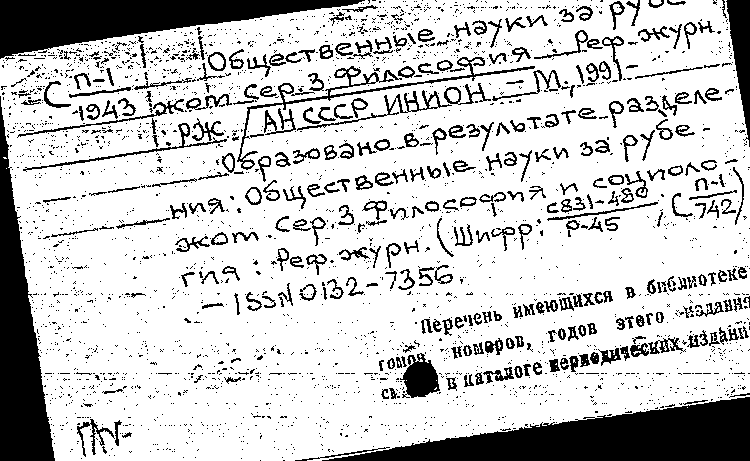 Общественные науки за рубе-
С П-1/1943 жом. Сер. 3, Философия: Реф. журн.
: РЖ / АН СССР. ИНИОН. – М., 1991–
Образовано в результате разделе-
ния: Общественные науки за рубе-
жом. Сер. 3, Философия и социоло-
гия: Реф. журн. (Шифр: с831-480/Р-45; С П-1/742)
– ISSN 0132-7356.
Перечень имеющихся в библиотеке
томов, номеров, годов этого издания
в каталоге периодических изданий